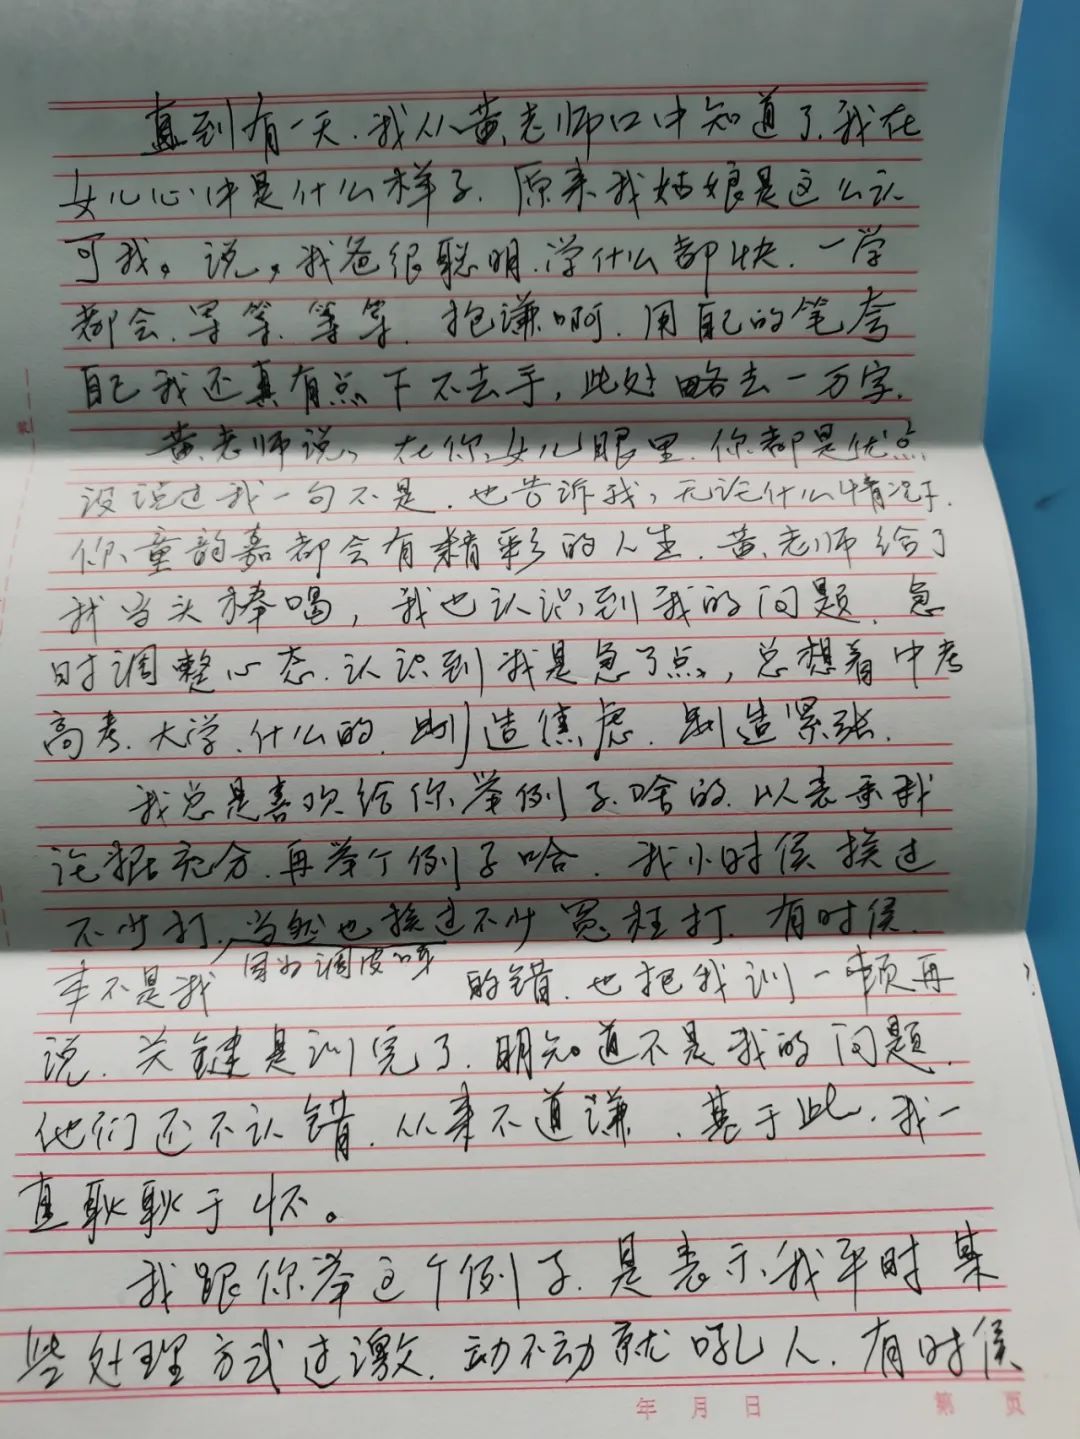 直到有一天.我从黄老师口中知道了.我在
女儿心中是什么样子.原来我姑娘是这么认
可我。说,我爸很聪明.学什么都快.一学
都会.等等.等等.抱谦啊.用自己的笔夸
自己我还真有点下不去手,此处略去一万字.
黄老师说,在你女儿眼里.你都是优点
没说过我一句不是.也告诉我,无论什么情况下.
你童韵嘉都会有精彩的人生.黄老师给了
我当头棒喝,我也认识到我的问题.急
时调整心态.认识到我是急了点,总想着中考
高考.大学.什么的.制造焦虑.制造紧张.
我总是喜欢给你举例子啥的.以表示我
论据充分.再举个例子哈.我小时候挨过
不少打,当然也挨过不少冤枉打.有时候.
本不是我因为调皮的错.也把我训一顿再
说.关键是训完了.明知道不是我的问题.
他们还不认错.从来不道谦.基于此.我一
直耿耿于怀。
我跟你举这个例子.是表示我平时某
些处理方式过激.动不动就吼人.有时候
年 月 日 第 页